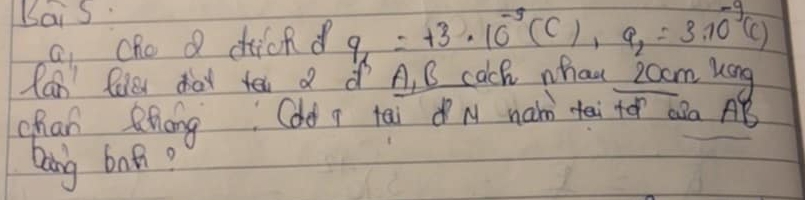 Bài 5:
a, Cho 2 điích đ q₁ = +3.10⁻⁹ (C), q₂ = 3.10⁻⁹ (C)
lần lượt đặt tại 2 đ' A, B cách nhau 20cm trong
chân không. Cđđt tại đ' M nằm tại tđ' của AB
bằng bnh?